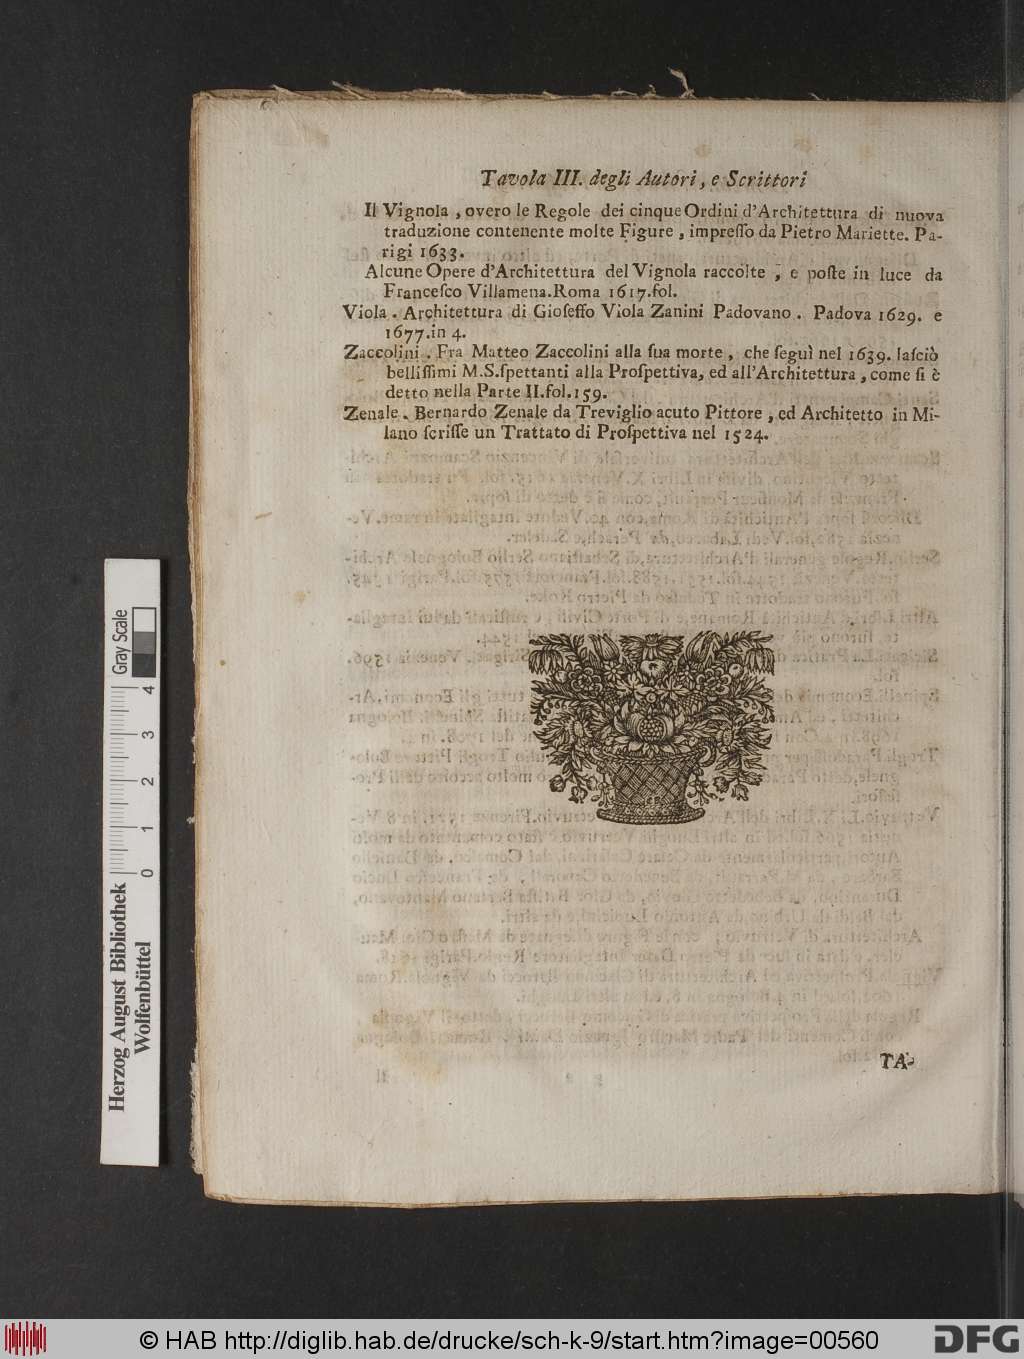 Tavola III. degli Autori, e Scrittori
Il Vignola , overo le Regole dei cinque Ordini d'Architettura di nuova
traduzione contenente molte Figure , impreſſo da Pietro Mariette. Pa-
rigi 1633.
Alcune Opere d'Architettura del Vignola raccolte , e poſte in luce da
Franceſco Villamena. Roma 1617. fol.
Viola . Architettura di Gioſeffo Viola Zanini Padovano . Padova 1629. e
1677. in 4.
Zaccolini . Fra Matteo Zaccolini alla ſua morte , che ſeguì nel 1639. laſciò
belliſſimi M.S. ſpettanti alla Proſpettiva, ed all'Architettura , come ſi è
detto nella Parte II. fol. 159.
Zenale . Bernardo Zenale da Treviglio acuto Pittore , ed Architetto in Mi-
lano ſcriſſe un Trattato di Proſpettiva nel 1524.
TA-
Herzog August Bibliothek
Wolfenbüttel
0 1 2 3 4
Gray Scale
© HAB http://diglib.hab.de/drucke/sch-k-9/start.htm?image=00560
DFG